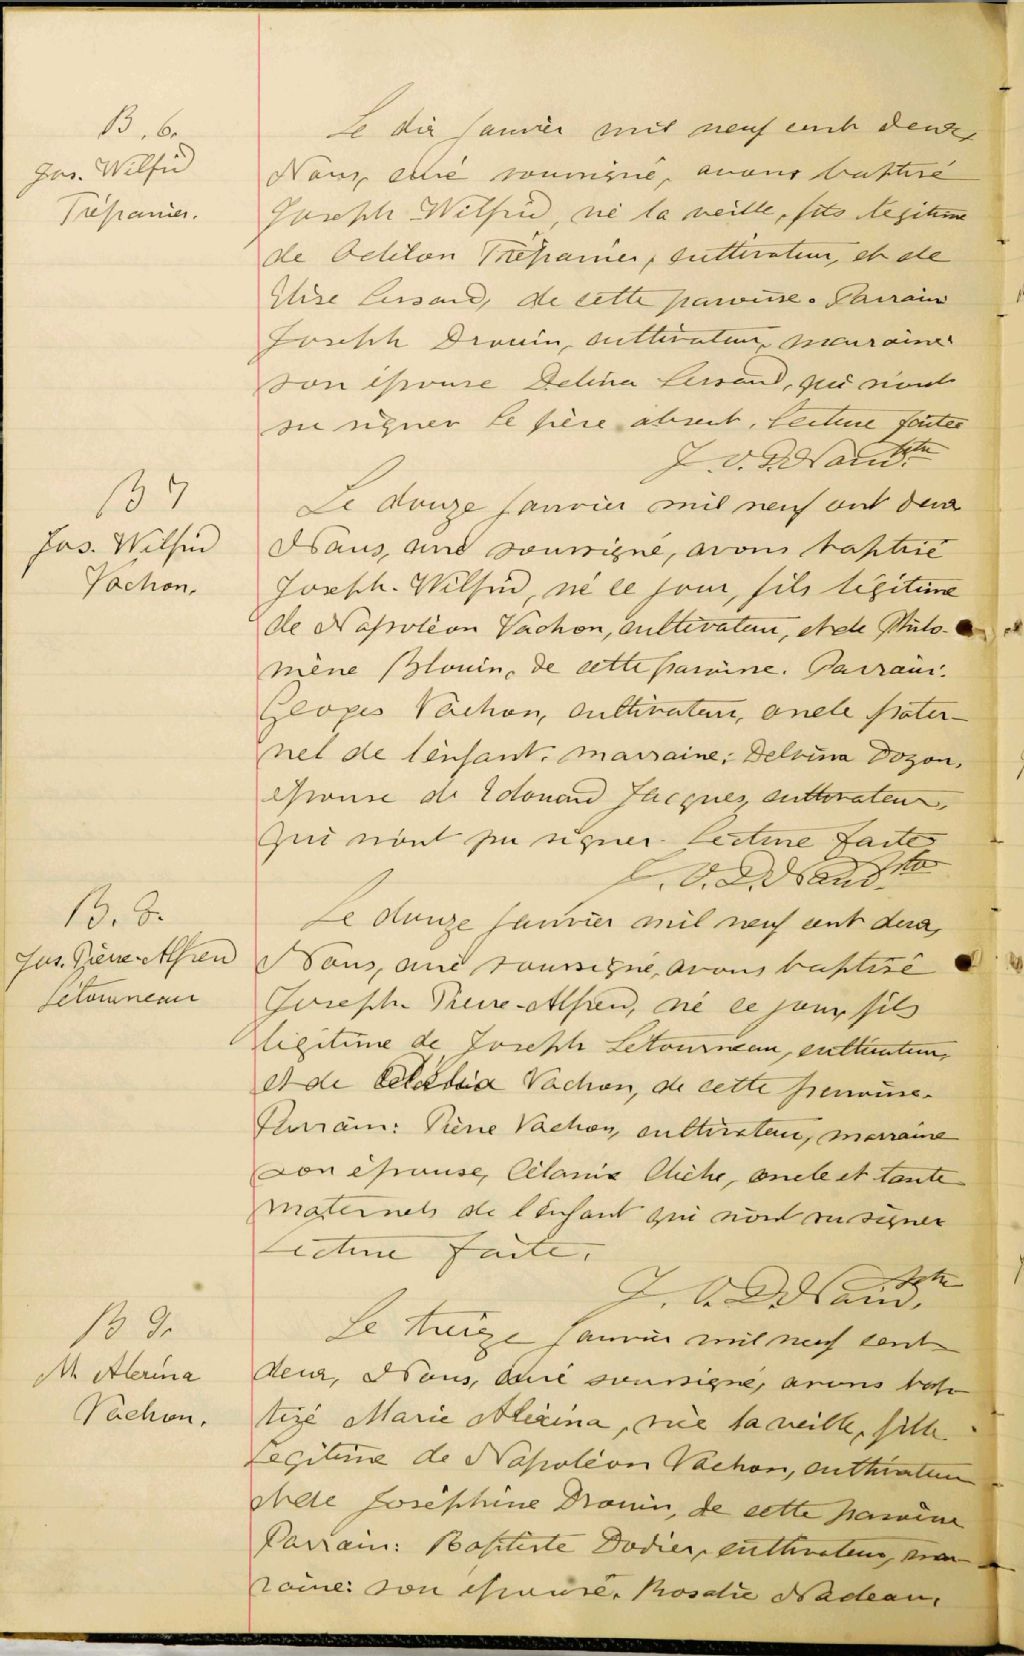 B. 6.
Jos. Wilfrid
Trépanier.
Le dix Janvier mil neuf cent deux,
Nous, curé soussigné, avons baptisé
Joseph Wilfrid, né la veille, fils légitime
de Odilon Trépanier, cultivateur, et de
Elise Lessard, de cette paroisse. Parrain
Joseph Drouin, cultivateur, marraine
son épouse Delina Lessard, qui n'ont
su signer le père absent. Lecture faite
J. V. P. Naud. Ptre
B 7
Jos. Wilfrid
Vachon.
Le douze Janvier mil neuf cent deux
Nous, curé soussigné, avons baptisé
Joseph-Wilfrid, né ce jour, fils légitime
de Napoléon Vachon, cultivateur, et de Philo-
mène Blouin, de cette paroisse. Parrain:
Georges Vachon, cultivateur, oncle pater-
nel de l'enfant. marraine: Delvina Doyon,
épouse de Edouard Jacques, cultivateur,
qui n'ont pu signer. Lecture faite
J. V. P. Naud. Ptre
B. 8.
Jos. Pierre-Alfred
Létourneau
Le douze Janvier mil neuf cent deux,
Nous, curé soussigné, avons baptisé
Joseph Pierre-Alfred, né ce jour, fils
légitime de Joseph Létourneau, cultivateur,
et de Vachon, de cette paroisse.
Parrain: Pierre Vachon, cultivateur, marraine
son épouse, Célanie Cliche, oncle et tante
maternels de l'enfant qui n'ont su signer
Lecture faite.
J. V. P. Naud. Ptre
B 9.
M. Alexina
Vachon.
Le treize Janvier mil neuf cent
deux, Nous, curé soussigné, avons bap-
tizé Marie Alexina, née la veille, fille
légitime de Napoléon Vachon, cultivateur
et de Joséphine Drouin, de cette paroisse
Parrain: Baptiste Dodier, cultivateur, mar-
raine: son épouse. Rosalie Nadeau,